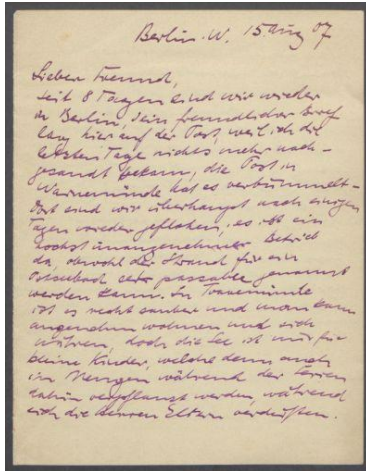 Berlin. W. 15 Aug 07
Lieber Freund,
seit 8 Tagen sind wir wieder
in Berlin, Dein freundlicher Brief
lag hier auf der Post, weil ich die
letzten Tage nichts mehr nach-
gesandt bekam, die Post in
Warnemünde hat es verbummelt -
Dort sind wir überhaupt nach einigen
Tagen wieder geflohen, es ist ein
höchst unangenehmer Betrieb
da, obwohl der Strand für ein
Ostseebad sehr passable genannt
werden kann. In Travemünde
ist es recht sauber und man kann
angenehm wohnen und sich
nähren, doch die See ist nur für
kleine Kinder, welche denn auch
in Mengen während der Ferien
dahin verpflanzt werden, während
sich die Herren Eltern verdüften.